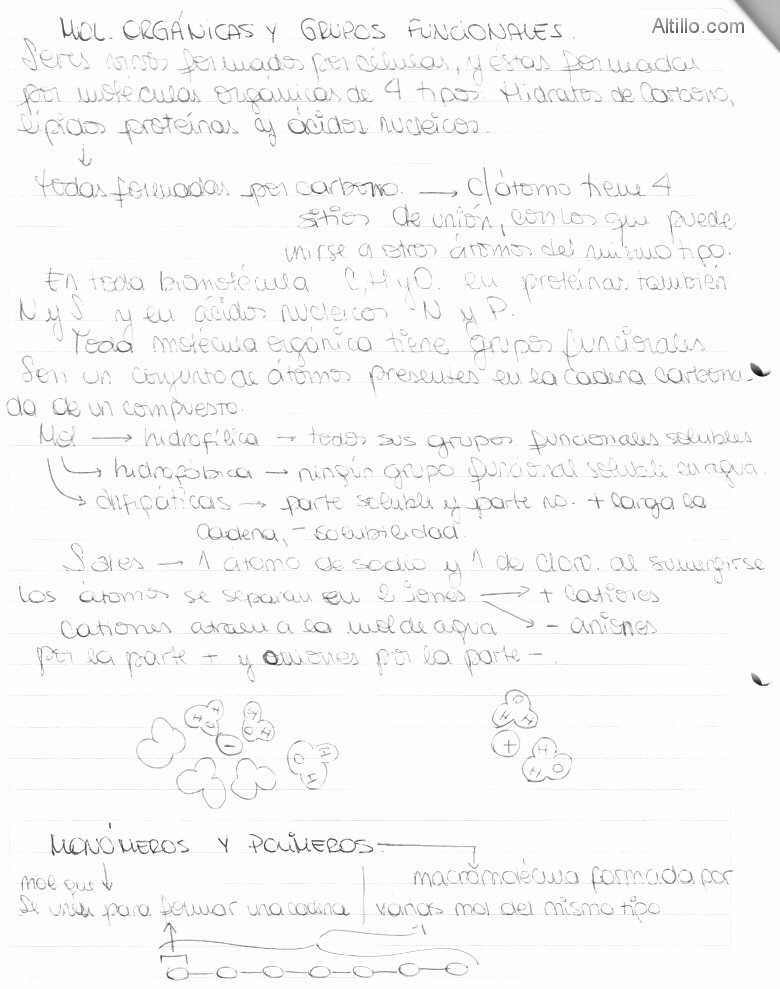 Altillo.com
MOL. ORGÁNICAS Y GRUPOS FUNCIONALES.
Seres vivos formados por células, y éstas formadas
por moléculas orgánicas de 4 tipos Hidratos de Carbono,
lípidos proteínas y ácidos nucleicos.
↓
Todas formadas por carbono. → c/átomo tiene 4
sitios de unión, con los que puede
unirse a otros átomos del mismo tipo.
En toda biomolécula C, H y O. en proteínas también
N y S y en ácidos nucleicos N y P.
Toda molécula orgánica tiene grupos funcionales
Son un conjunto de átomos presentes en la cadena carbona-
da de un compuesto.
Mol → hidrofílica → todos sus grupos funcionales solubles
→ hidrofóbica → ningún grupo funcional soluble en agua.
→ anfipáticas → parte soluble y parte no. + larga la
cadena, - solubilidad.
Sales → 1 átomo de sodio y 1 de cloro. al sumergirse
los átomos se separan en 2 iones → + cationes
cationes atraen a la mol de agua → - aniones
por la parte + y aniones por la parte -.
H H O H O H - O H I
O H H + H H O
MONÓMEROS Y POLÍMEROS
mol que ↓ macromolécula formada por
se unen para formar una cadena varias mol del mismo tipo